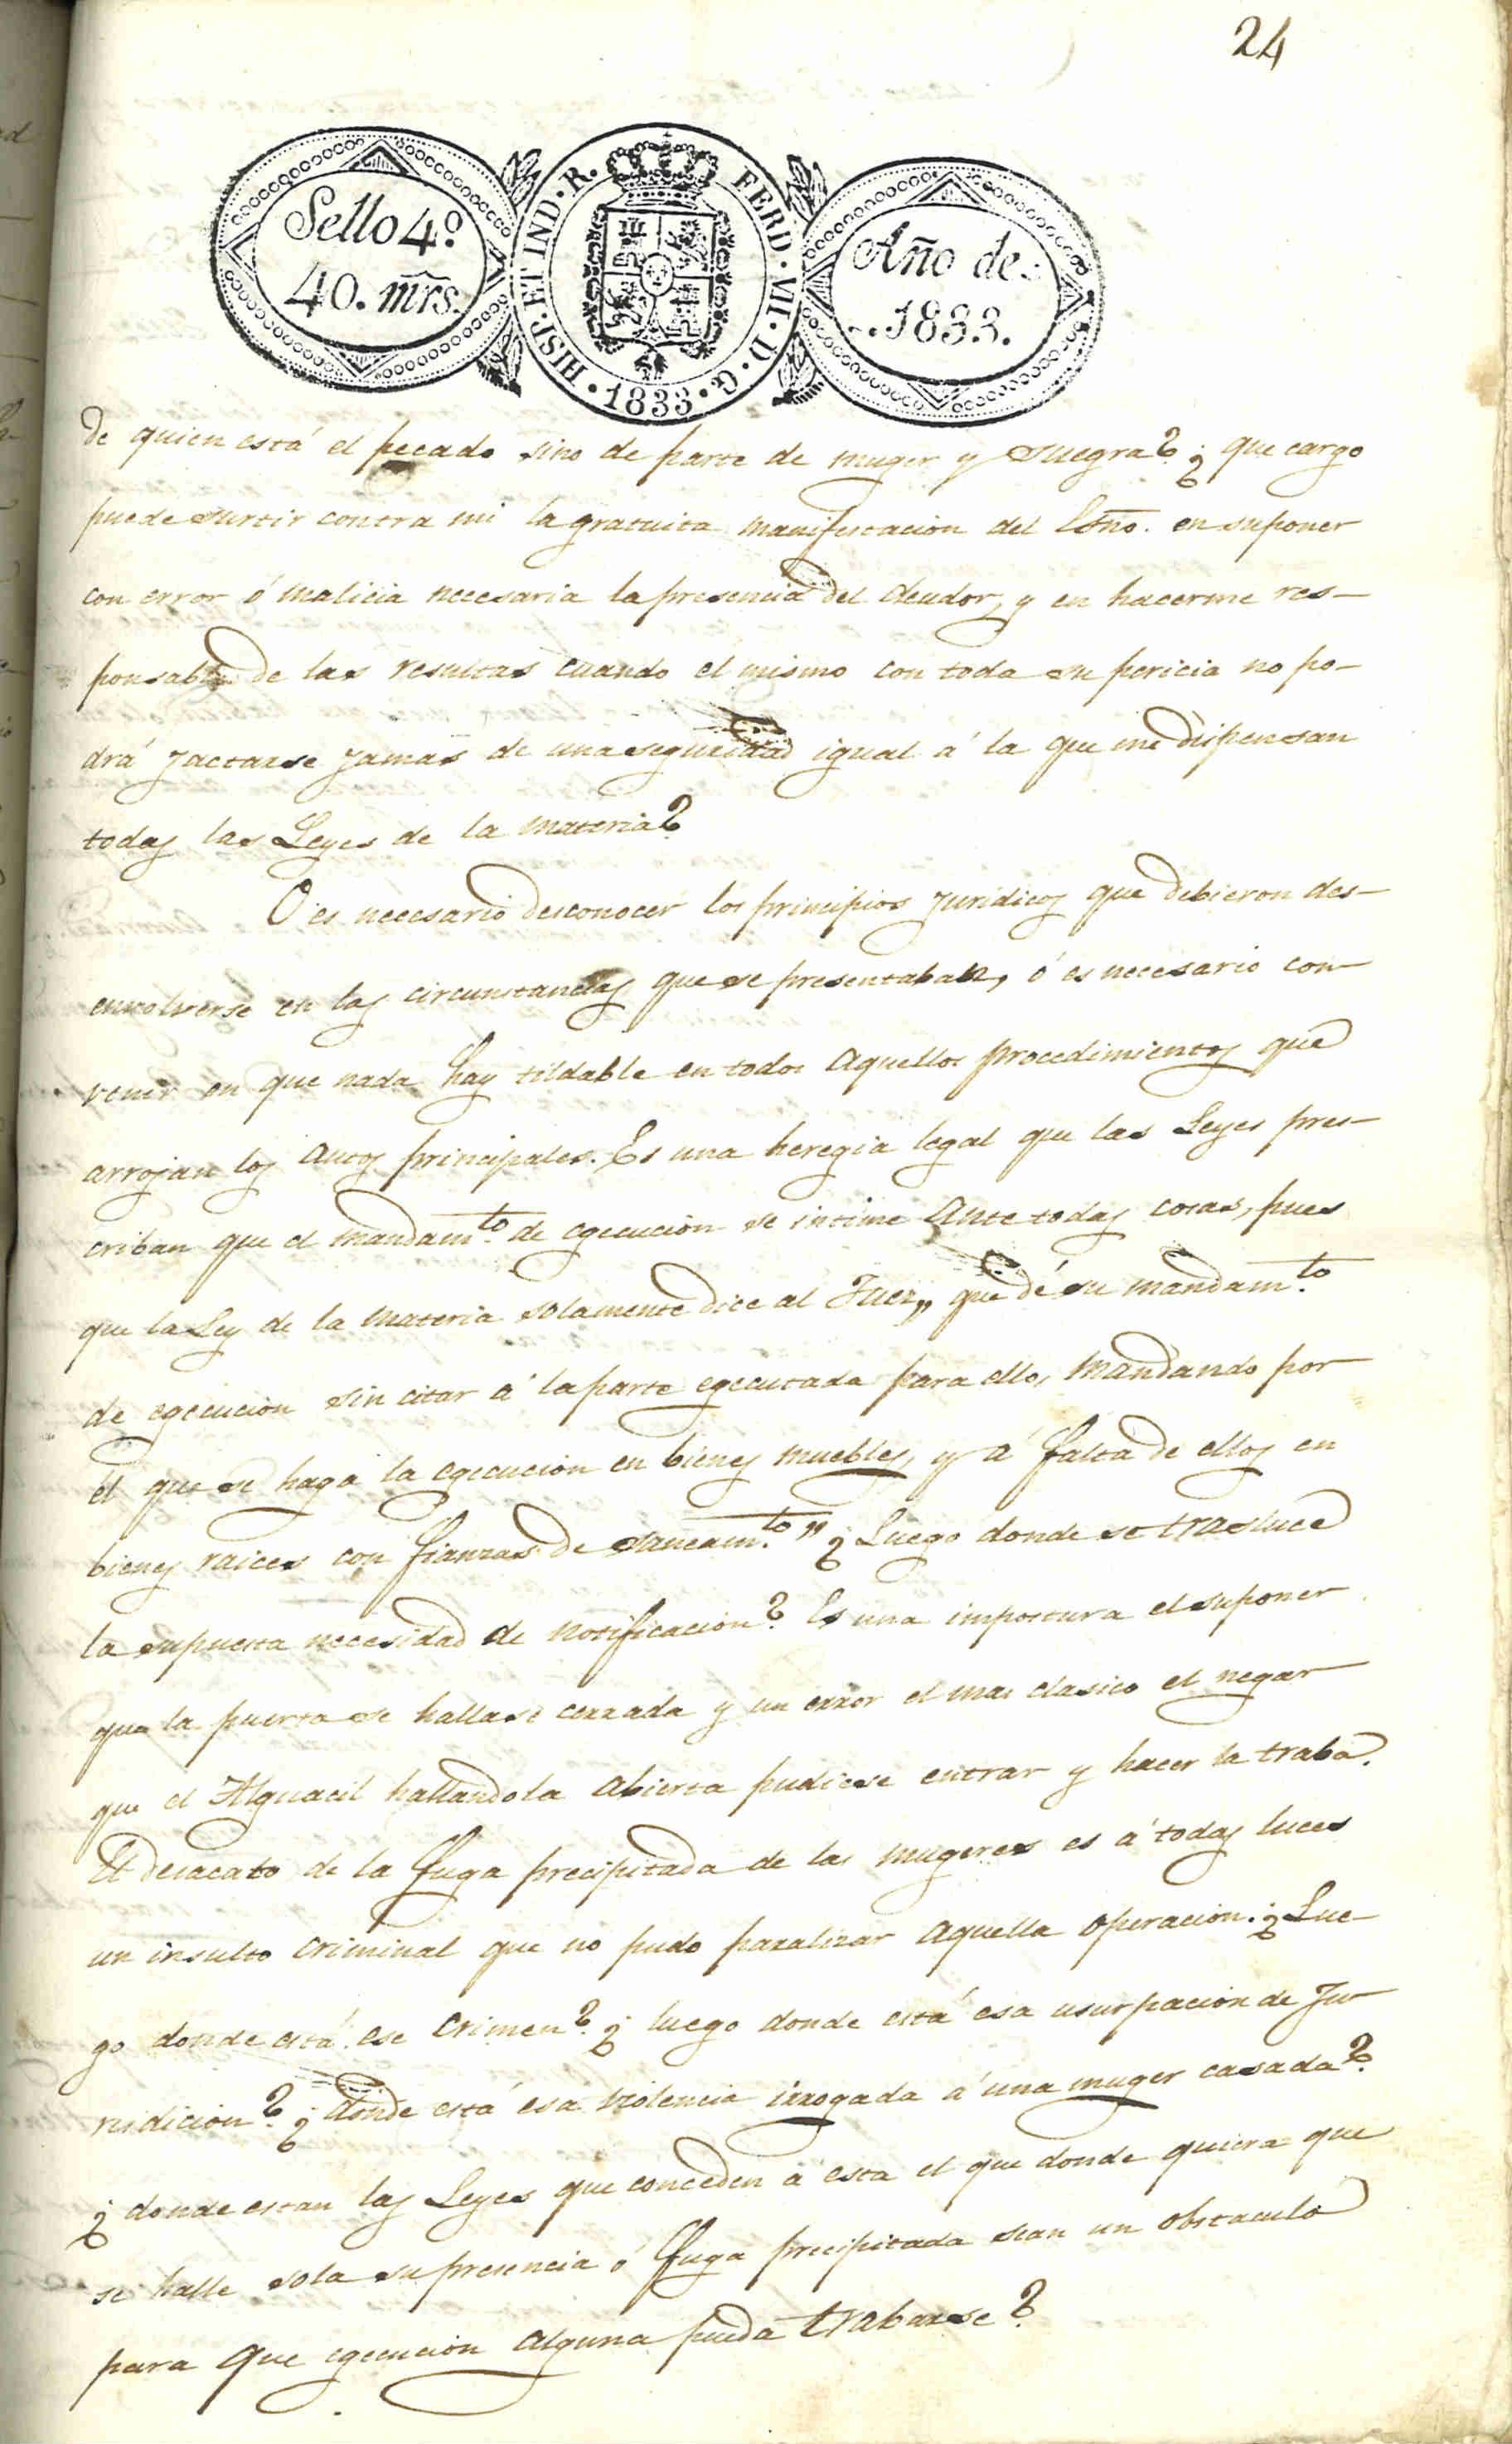 24
Sello 4º
40. mrs.
HISP. ET IND. R.
FERD. VII. D. G.
1833
Año de
1833.
de quien está el pecado sino de parte de muger y suegra? ¿que cargo
puede surtir contra mi la gratuita manifestacion del Esno. en suponer
con error ó malicia necesaria la presencia del deudor, y en hacerme res-
ponsable de las resultas cuando el mismo con toda su pericia no po-
drá jactarse jamas de una seguridad igual á la que me dispensan
todas las Leyes de la materia?
O es necesario desconocer los principios juridicos que debieron des-
envolverse en las circunstancias que se presentaban, ó es necesario con-
venir en que nada hay tildable en todos aquellos procedimientos que
arrojan los autos principales. Es una heregia legal que las Leyes pres-
criban que el mandamto. de egecucion se intime ante todas cosas, pues
que la Ley de la materia solamente dice al Juez „ que dé su mandamto.
de egecucion sin citar á la parte egecutada para ello, mandando por
él que se haga la egecucion en bienes muebles, y á falta de ellos en
bienes raices con fianzas de saneamto. „ ¿Luego donde se trasluce
la supuesta necesidad de notificacion? Es una impostura el suponer
que la puerta se hallase cerrada y un error el mas clasico el negar
que el Alguacil hallandola abierta pudiese entrar y hacer la traba.
El desacato de la fuga precipitada de las mugeres es á todas luces
un insulto criminal que no pudo paralizar aquella operacion. ¿Lue-
go donde está ese crimen? ¿luego donde está esa usurpacion de Ju-
risdicion? ¿donde está esa violencia irrogada á una muger casada?
¿donde estan las Leyes que conceden á esta el que donde quiera que
se halle sola su presencia ó fuga precipitada sean un obstaculo
para que egecucion alguna pueda trabarse?